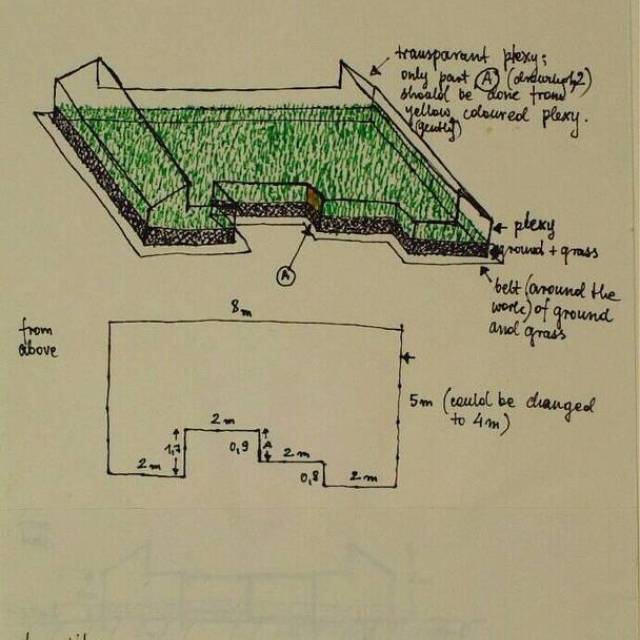 transparant plexy;
only part A (drawing 2)
should be done from
yellow coloured plexy.
(gently)
plexy
ground + grass
A
belt (around the
work) of ground
and grass
8m
from
above
5m (could be changed
to 4m)
2m
1,7
0,9
A
2m
2m
0,8
2m